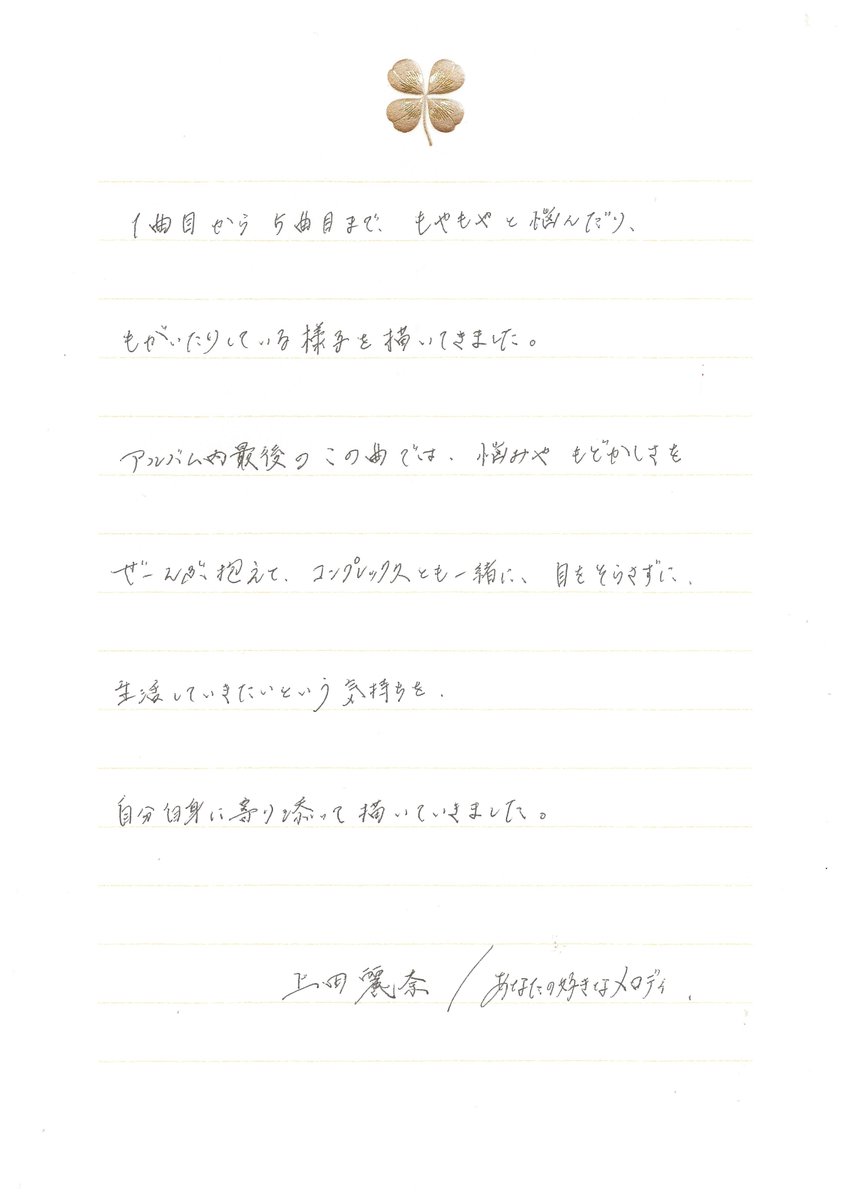 1曲目から5曲目まで、もやもやと悩んだり、
もがいたりしている様子を描いてきました。
アルバム内最後のこの曲では、悩みやもどかしさを
ぜーんぶ抱えて、コンプレックスとも一緒に、目をそらさずに、
生活していきたいという気持ちを、
自分自身に寄り添って描いていきました。
上田麗奈/あなたの好きなメロディ、